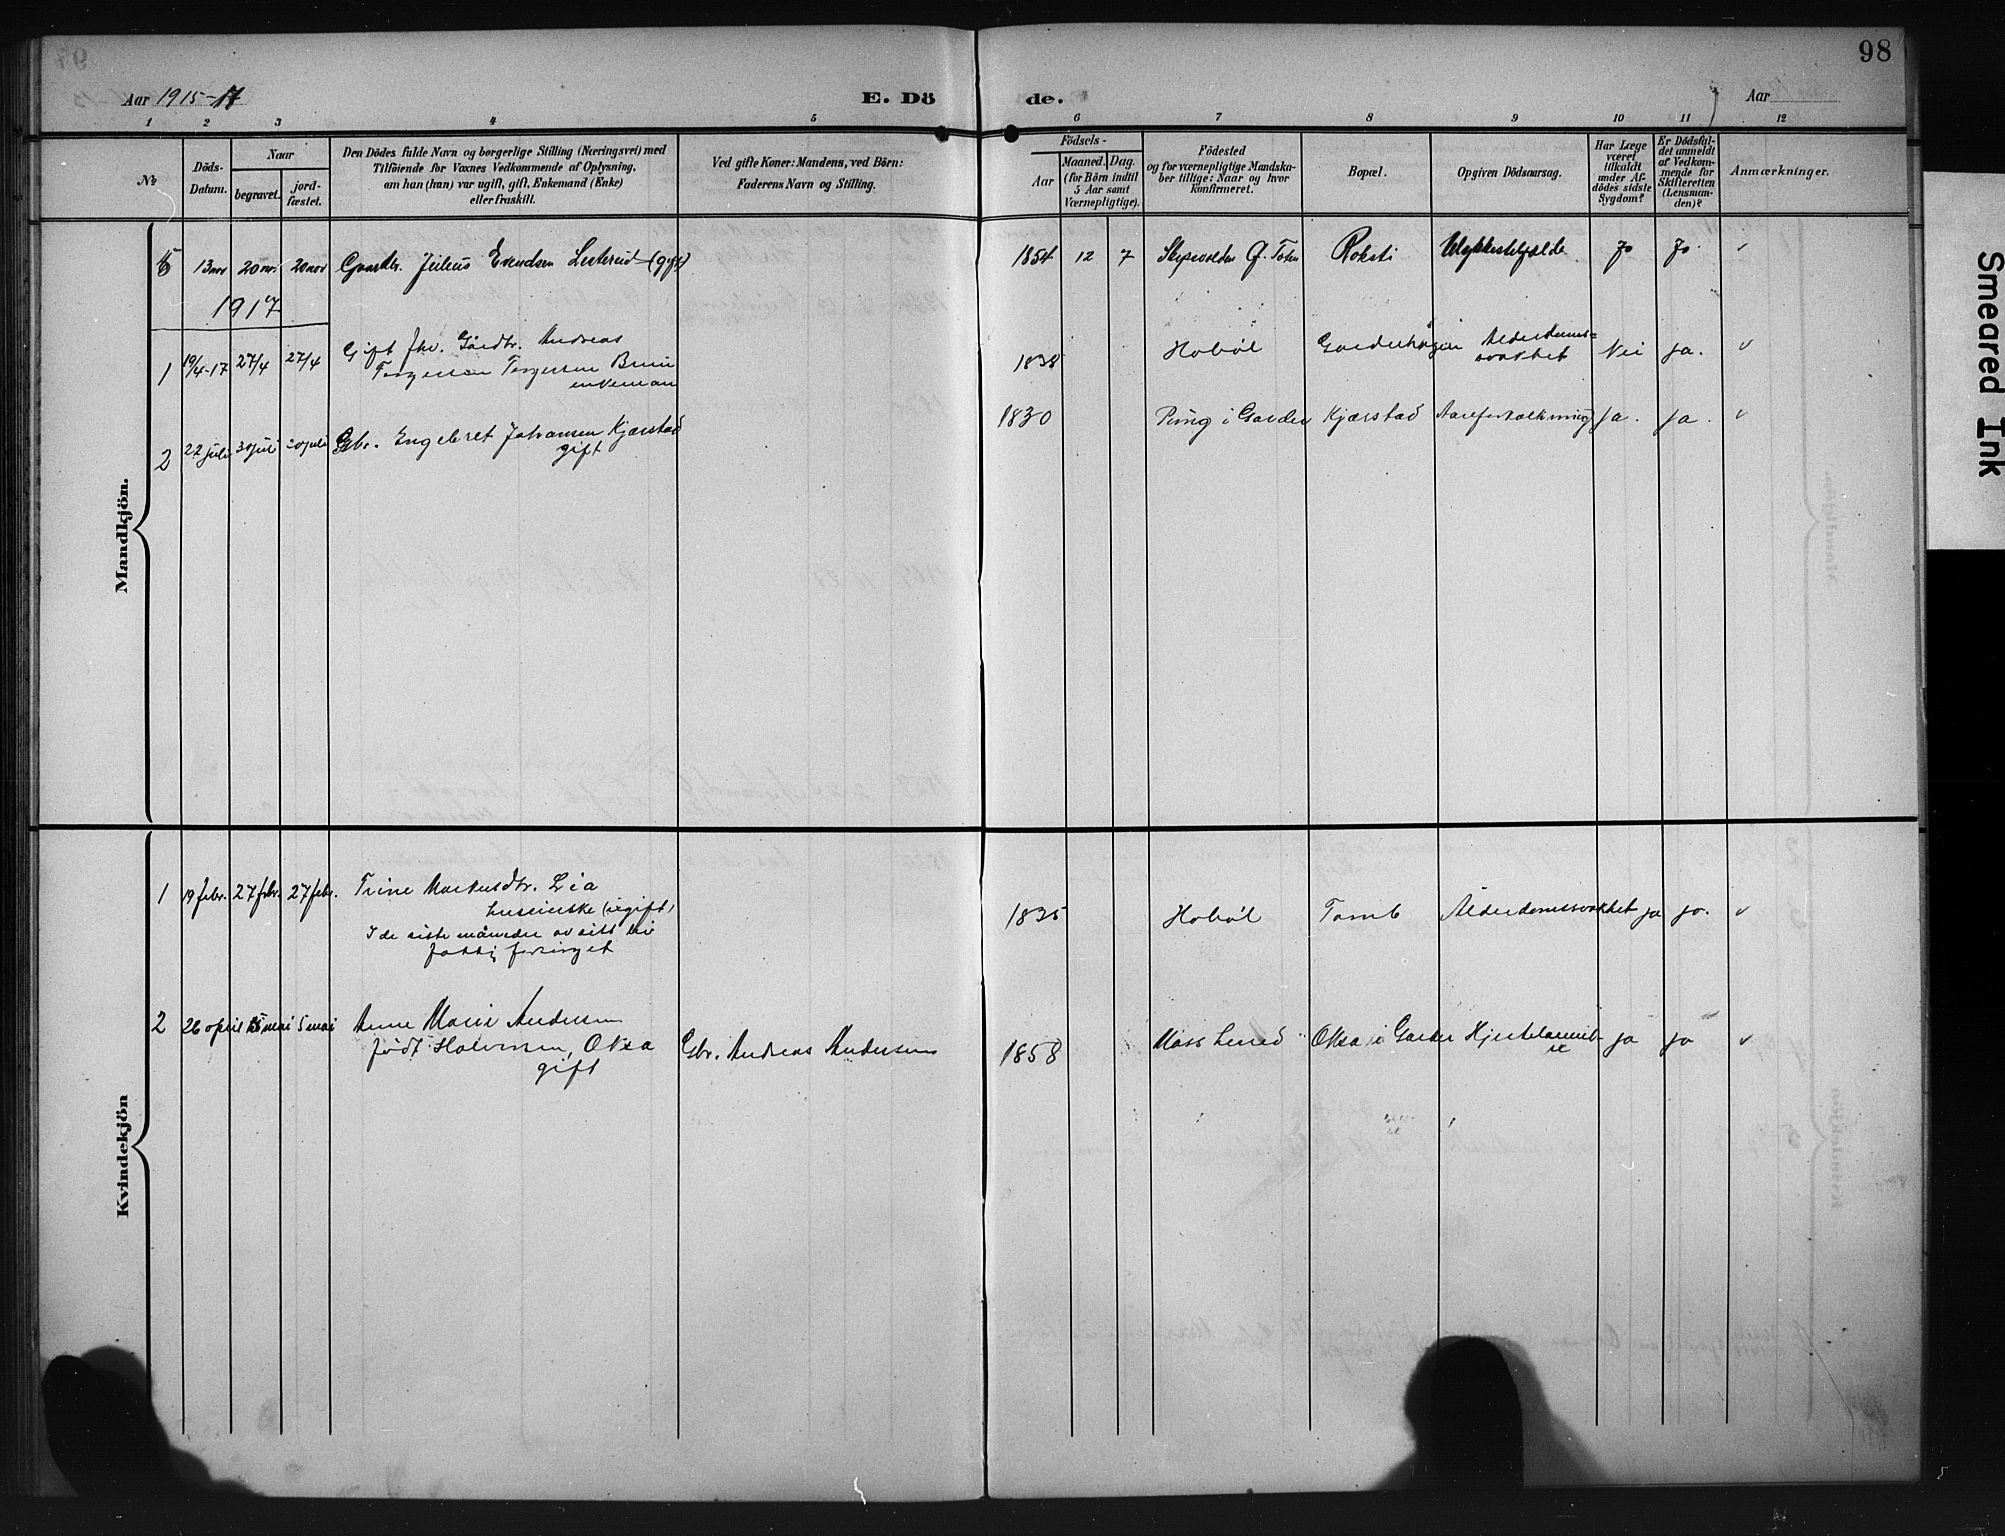 98
Aar 1915-17
E. Dö
de.
Aar
1 2 3 4 5 6 7 8 9 10 11 12
No
Döds-
Datum.
Naar
begravet.
jord-
fæstet.
Den Dödes fulde Navn og borgerlige Stilling (Næringsvei) med
Tilföiende for Voxnes Vedkommende af Oplysning,
om han (hun) var ugift, gift, Enkemand (Enke)
eller fraskilt.
Ved gifte Koner: Mandens, ved Börn:
Faderens Navn og Stilling.
Födsels-
Aar
Maaned. Dag.
(for Börn indtil
5 Aar samt
Værnepligtige).
Födested
og for værnepligtige Mandska-
ber tillige: Naar og hvor
konfirmeret.
Bopæl.
Opgiven Dödsaarsag.
Har Læge
været
tilkaldt
under Af-
dödes sidste
Sygdom?
Er Dödsfal-
det anmeldt
af Vedkom-
mende for
Skifteretten
(Lensman-
den)?
Anmærkninger.
Mandkjön.
5 13 nov 20 nov. 20 nov Gaardbr. Julius Evendsen Lesterud (gift) 1854 12 7 Ø. Toten Roksti Ulykkestilfælde Ja Ja
1917
1 19/4-17 27/4 27/4 Gift fhv. Gårdbr. Andreas
Torgersen Torgersen Brun
enkeman
1838 Hobøl Alderdoms-
svakhet Nei ja.
2 22 juli 30 juli 30 juli Gbr. Engebret Johansen Kjærstad
gift
1830 Ring i Garder Kjærstad Aareforkalkning ja. ja.
Kvindekjön
1 19 febr. 27 febr. 27 febr. Trine Markusdtr. Lia
husmenske (ugift)
I de siste måneder av sitt liv
fattig forsørget
1835 Hobøl Tomb Alderdomssvakhet ja ja.
2 26 april 5 mai 5 mai Anne Marie Andersen
født Halvorsen, Oksa
gift
Gbr. Andreas Andersen
1858 Moss land Oksa i Garder Hjertelammel-
se ja ja
Smeared Ink